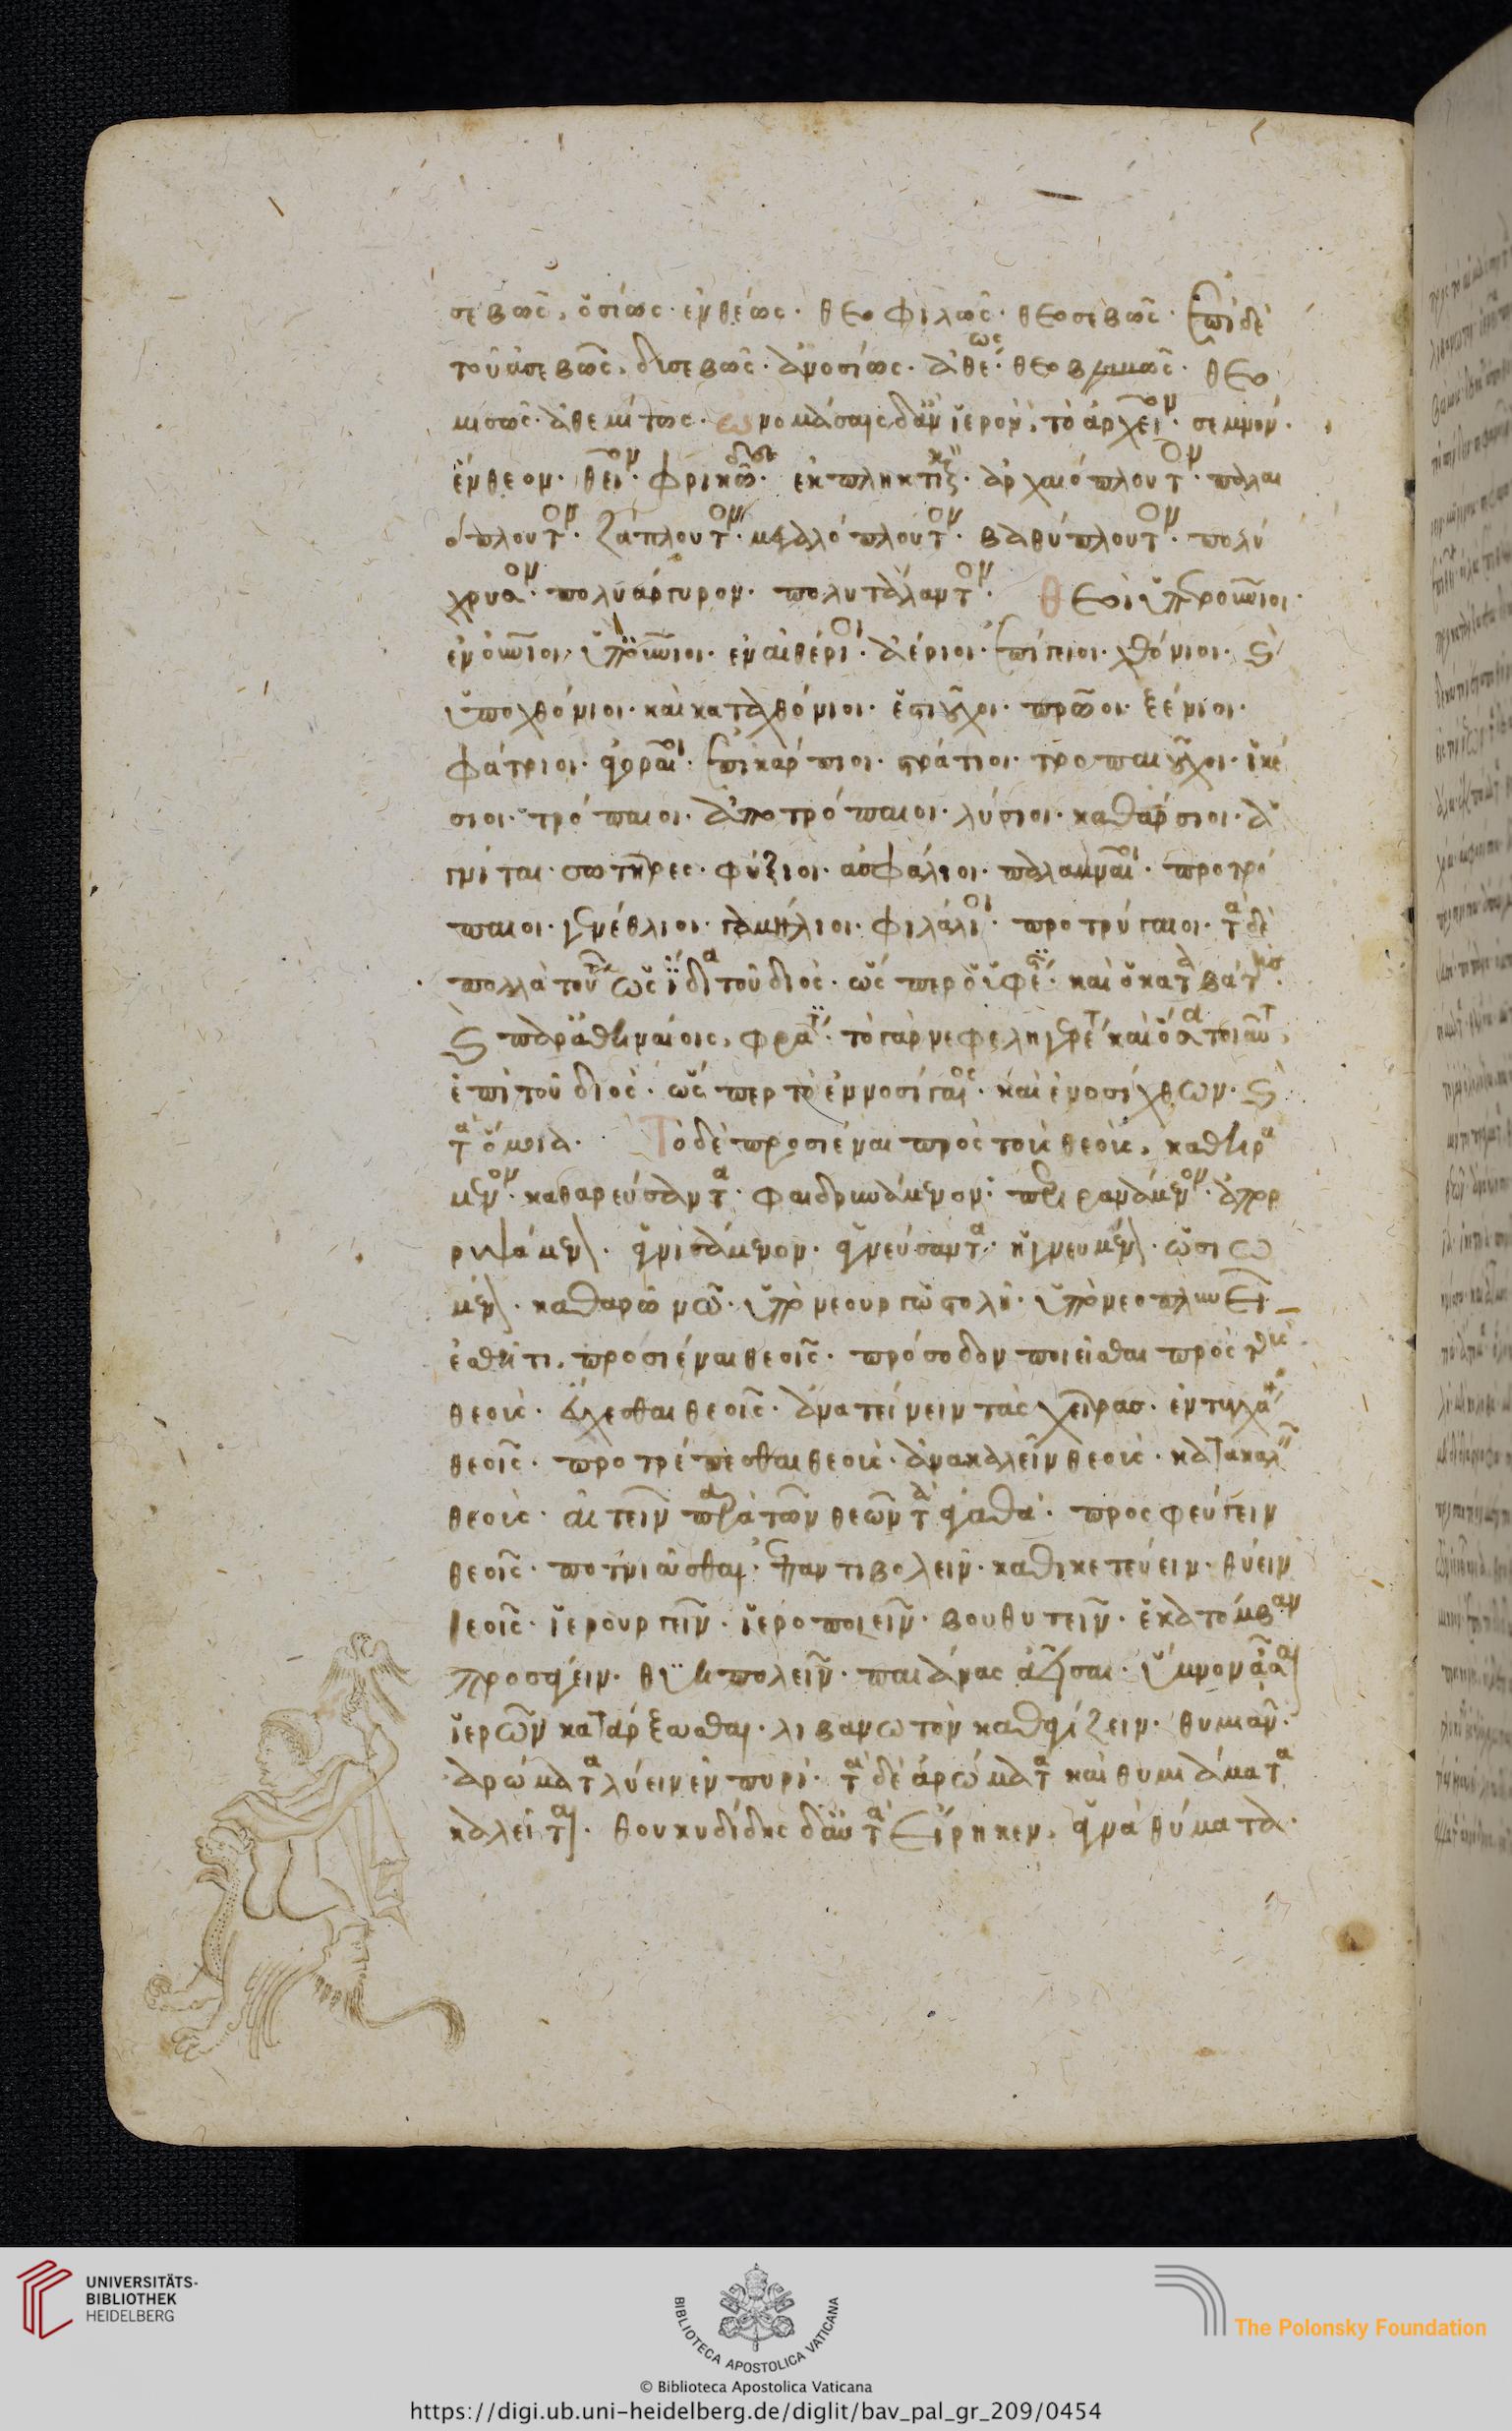 σεβῶς, ὁσίως· ἐνθέως· θεοφιλῶς· θεοσεβῶς· ἐπὶ δὲ
τοῦ ἀσεβῶς, δυσεβῶς· ἀνοσίως· ἀθέως· θεοβλαβῶς· θεο
μισῶς· ἀθεμίτως· ὠνομάσαις δἂν ἱερὸν, τὸ ἀρχεῖον· σεμνόν·
ἔνθεον· θεῖον· φρικῶδες· ἐκπληκτικόν· ἀρχαιόπλουτον· παλαι
όπλουτον· ζάπλουτον· μεγαλόπλουτον· βαθύπλουτον· πολύ
χρυσον· πολυάργυρον· πολυτάλαντον· Θεοὶ ὑπερουράνιοι·
ἐνουράνιοι· ὑπουράνιοι· ἐναιθέριοι· ἀέριοι· ἐπίγειοι· χθόνιοι· καὶ
ὑποχθόνιοι· καὶ καταχθόνιοι· ἑστιοῦχοι· πατρῷοι· ξένιοι·
φράτριοι· ἀγοραῖοι· ἐπικάρπιοι· στράτιοι· τροπαιοῦχοι· ἱκέ
σιοι· τρόπαιοι· ἀποτρόπαιοι· λύσιοι· καθάρσιοι· ἁ
γνίται· σωτῆρες· φύξιοι· ἀσφάλιοι· παλαμναῖοι· προτρό
παιοι· γενέθλιοι· γαμήλιοι· φιλάλιοι· προτρύγαιοι· τὰ δὲ
πολλὰ τούτων ὡς ἴδια τοῦ διὸς· ὥσπερ ὁ ὑέτιος· καὶ ὁ καταιβάτης·
καὶ παρ ἀθηναίοις, φράτριος· τὸ γὰρ νεφεληγερέτης καὶ ὅσα τοιαῦτα,
ἐπὶ τοῦ διὸς· ὥσπερ τὸ ἐννοσίγαιος· καὶ ἐνοσίχθων· καὶ
τὰ ὅμοια· Τὸ δὲ προσιέναι πρὸς τοὺς θεοὺς, καθηρα
μένον· καθαρεύσαντα· φαιδρυνάμενον· περιρανάμενον· ἀπορ
ρυψάμενον· ἁγνισάμενον· ἁγνεύσαντα· ἡγνευμένον· ὡσιω
μένον· καθαρῷ νῷ· ὑπὸ νεουργῷ στολῇ· ὑπὸ νεοπλυνεῖ
ἐσθῆτι, προσιέναι θεοῖς· πρόσοδον ποιεῖσθαι πρὸς τοὺς
θεοὺς· εὔχεσθαι θεοῖς· ἀνατείνειν τὰς χεῖρας· ἐντυχεῖν
θεοῖς· προτρέπεσθαι θεοὺς· ἀνακαλεῖν θεοὺς· κατακαλεῖν
θεοὺς· αἰτεῖν παρὰ τῶν θεῶν τὰ ἀγαθά· προσφεύγειν
θεοῖς· ποτνιᾶσθαι· ἐπαντιβολεῖν· καθικετεύειν· θύειν
θεοῖς· ἱερουργεῖν· ἱεροποιεῖν· βουθυτεῖν· ἑκατόμβαν
προσάγειν· θυηπολεῖν· παιᾶνας ᾆσαι· ὕμνον ᾆσαι
ἱερῶν κατάρξασθαι· λιβανωτὸν καθαγίζειν· θυμιᾶν·
ἀρώματα λύειν ἐν πυρί· τὰ δὲ ἀρώματα καὶ θυμιάματα
καλεῖται· θουκυδίδης δαὐτὰ εἴρηκεν, ἁγνὰ θύματα·
UNIVERSITÄTS-
BIBLIOTHEK
HEIDELBERG
BIBLIOTECA APOSTOLICA VATICANA
The Polonsky Foundation
© Biblioteca Apostolica Vaticana
https://digi.ub.uni-heidelberg.de/diglit/bav_pal_gr_209/0454